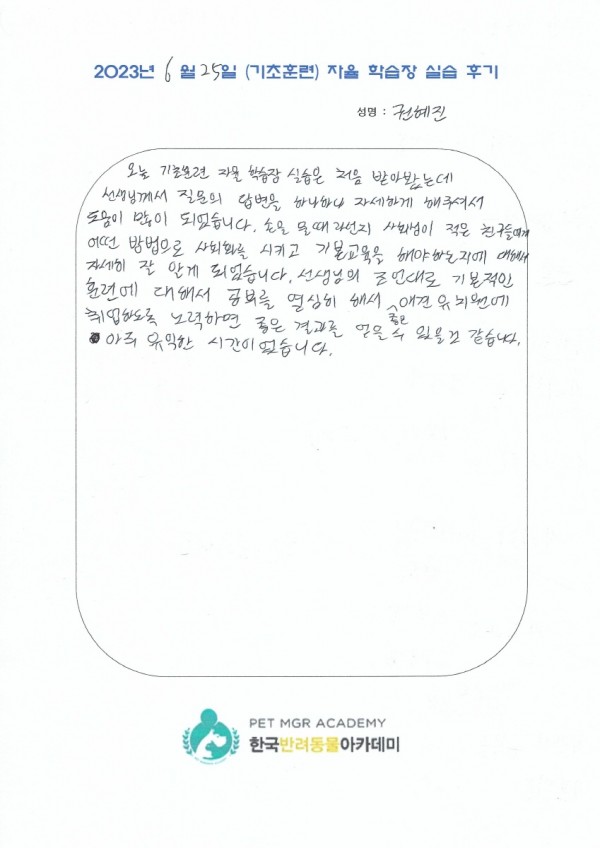 2023년 6월 25일 (기초훈련) 자율 학습장 실습 후기
성명 : 권혜진
오늘 기초훈련 자율 학습장 실습은 처음 받아봤는데
선생님께서 질문의 답변을 하나하나 자세하게 해주셔서
도움이 많이 되었습니다. 손을 물때라던지 사회성이 적은 친구들에게
어떤 방법으로 사회화를 시키고 기본교육을 해야하는지에 대해서
자세히 잘 알게 되었습니다. 선생님의 조언대로 기본적인
훈련에 대해서 공부를 열심히 해서 애견유치원에
취업하도록 노력하면 좋은 결과를 얻을 수 있을것 같습니다.
아주 유익한 시간이었습니다.
PET MGR ACADEMY
한국반려동물아카데미